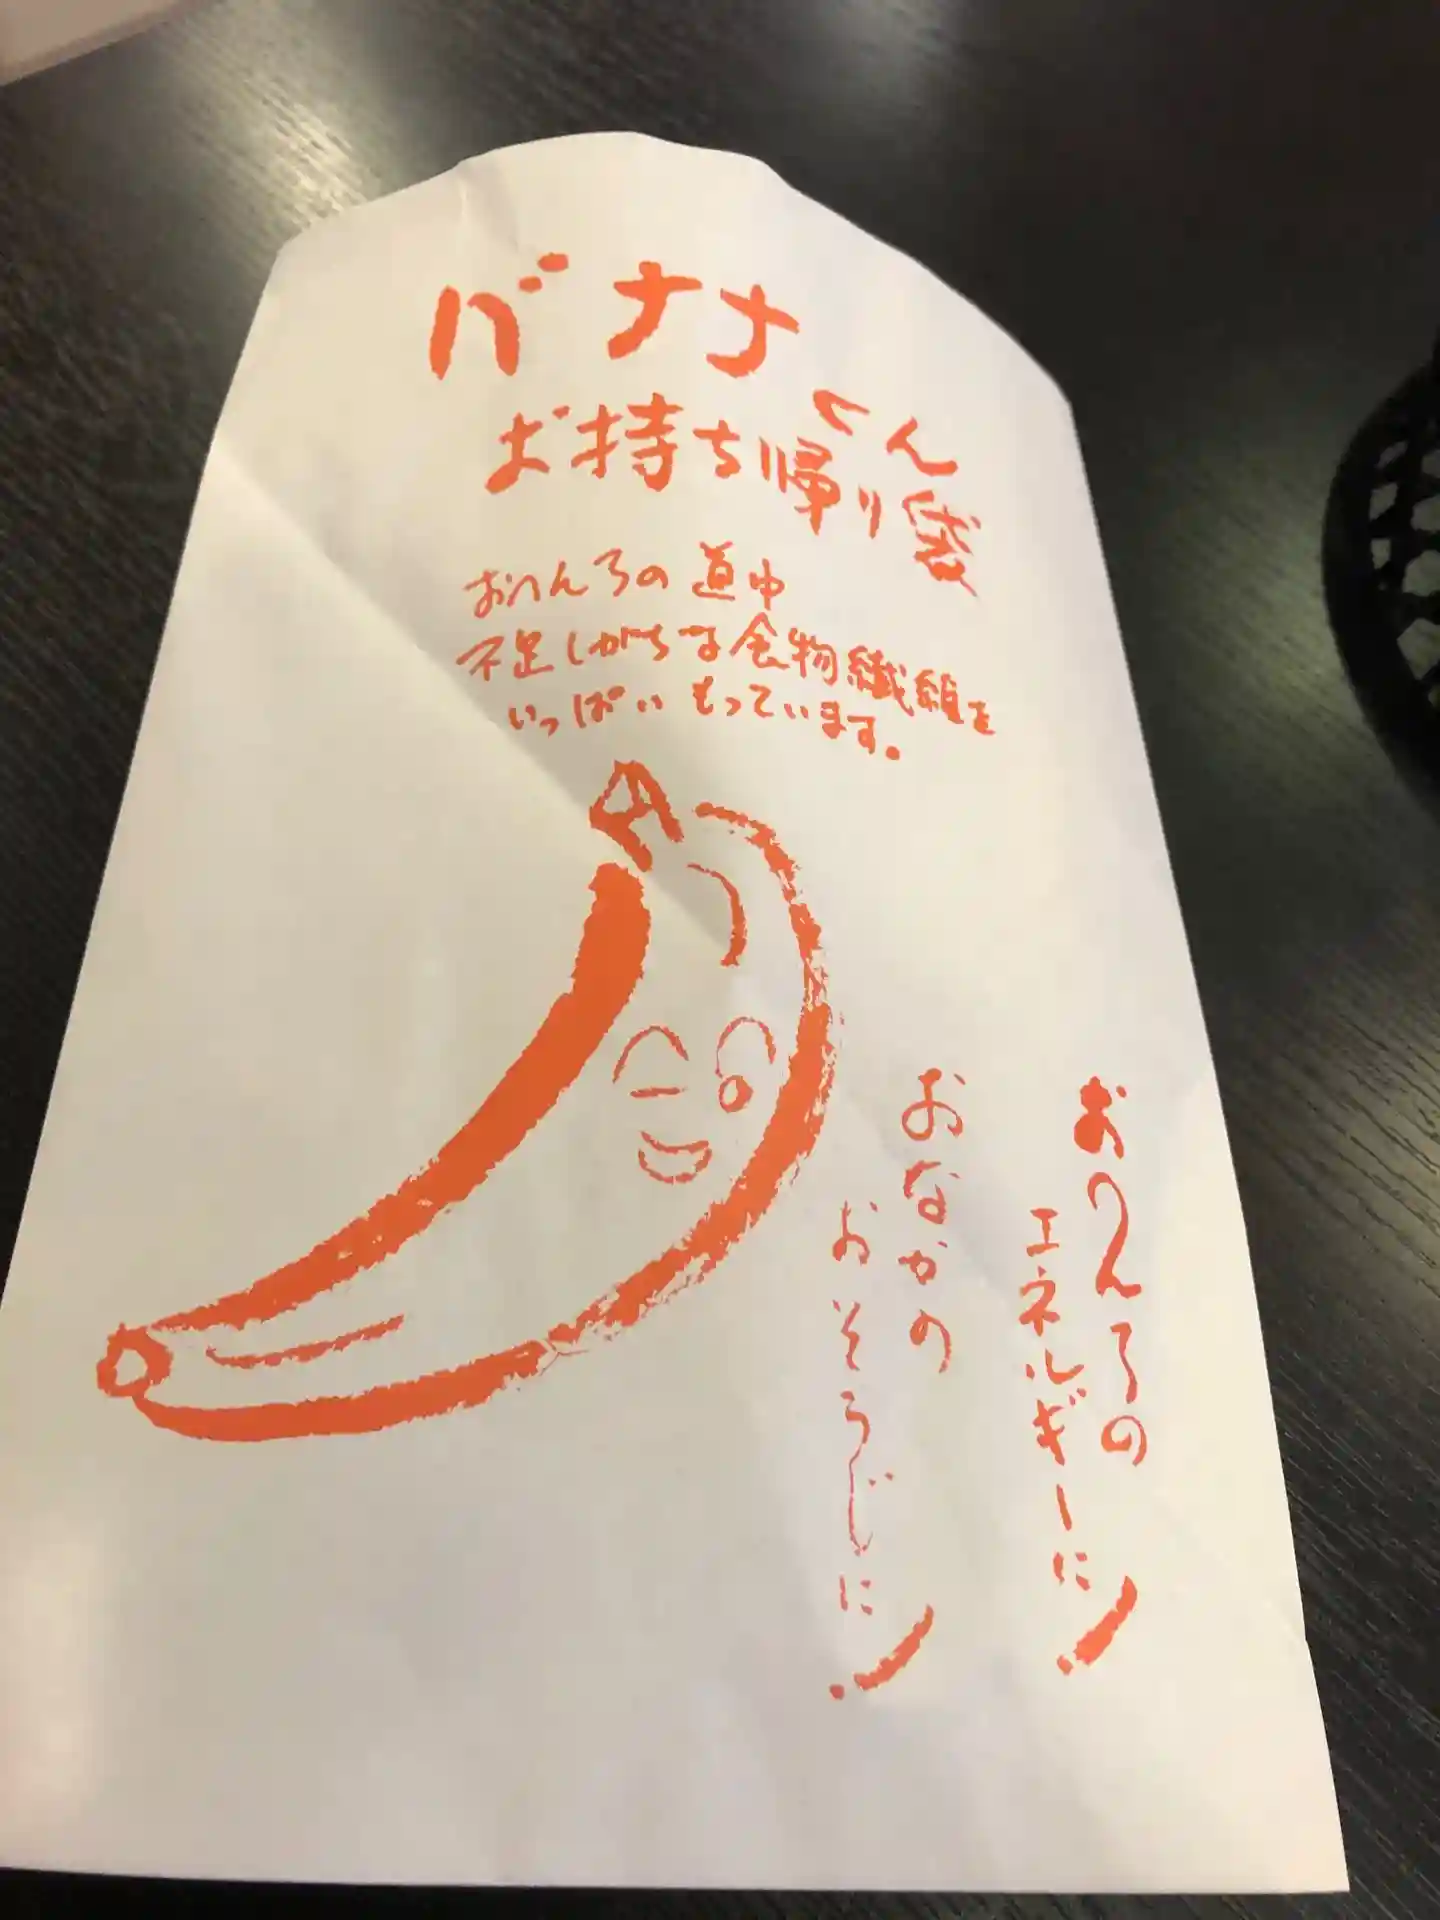 バナナくん
お持ち帰り袋
おへんろの道中
不足しがちな食物繊維を
いっぱいもっています。
おへんろの
エネルギーに!
おなかの
おそうじに!